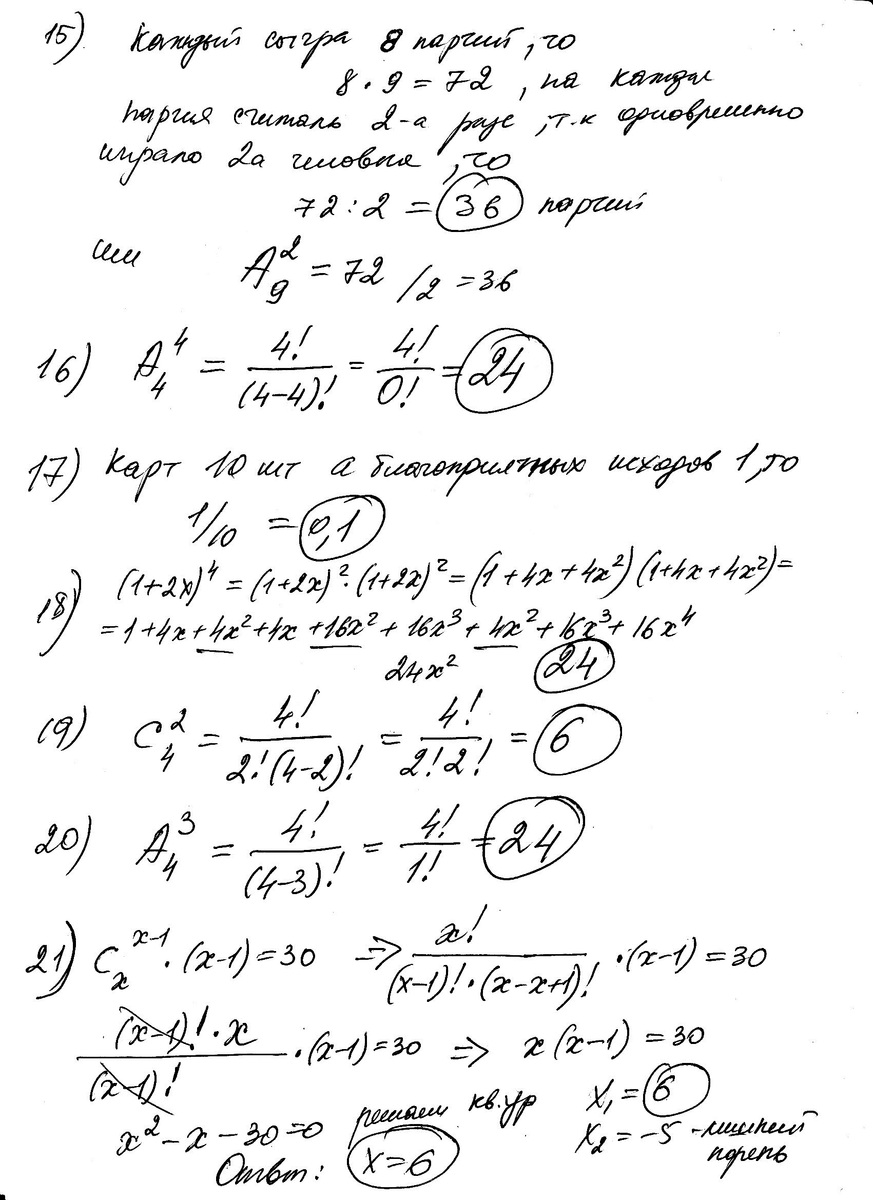 15) Каждый сыгра 8 партий, то
8 · 9 = 72 , на кажды
партия считаль 2-а разе, т.к одновременно
играло 2а человека, то
72 : 2 = 36 партий
или A₉² = 72 /2 = 36
16) A₄⁴ = 4!/(4-4)! = 4!/0! = 24
17) Карт 10 шт а благоприятных исходов 1, то
1/10 = 0,1
18) (1+2x)⁴ = (1+2x)² · (1+2x)² = (1+4x+4x²)(1+4x+4x²) =
= 1+4x+4x²+4x+16x²+16x³+4x²+16x³+16x⁴
24x² 24
19) C₄² = 4!/2!(4-2)! = 4!/2!2! = 6
20) A₄³ = 4!/(4-3)! = 4!/1! = 24
21) Cₓˣ⁻¹ · (x-1) = 30 => x!/(x-1)!·(x-x+1)! · (x-1) = 30
(x-1)!·x/(x-1)! · (x-1) = 30 => x(x-1) = 30
x² - x - 30 = 0 решаем кв. ур x₁ = 6
x₂ = -5 - лишний корень
Ответ: x = 6